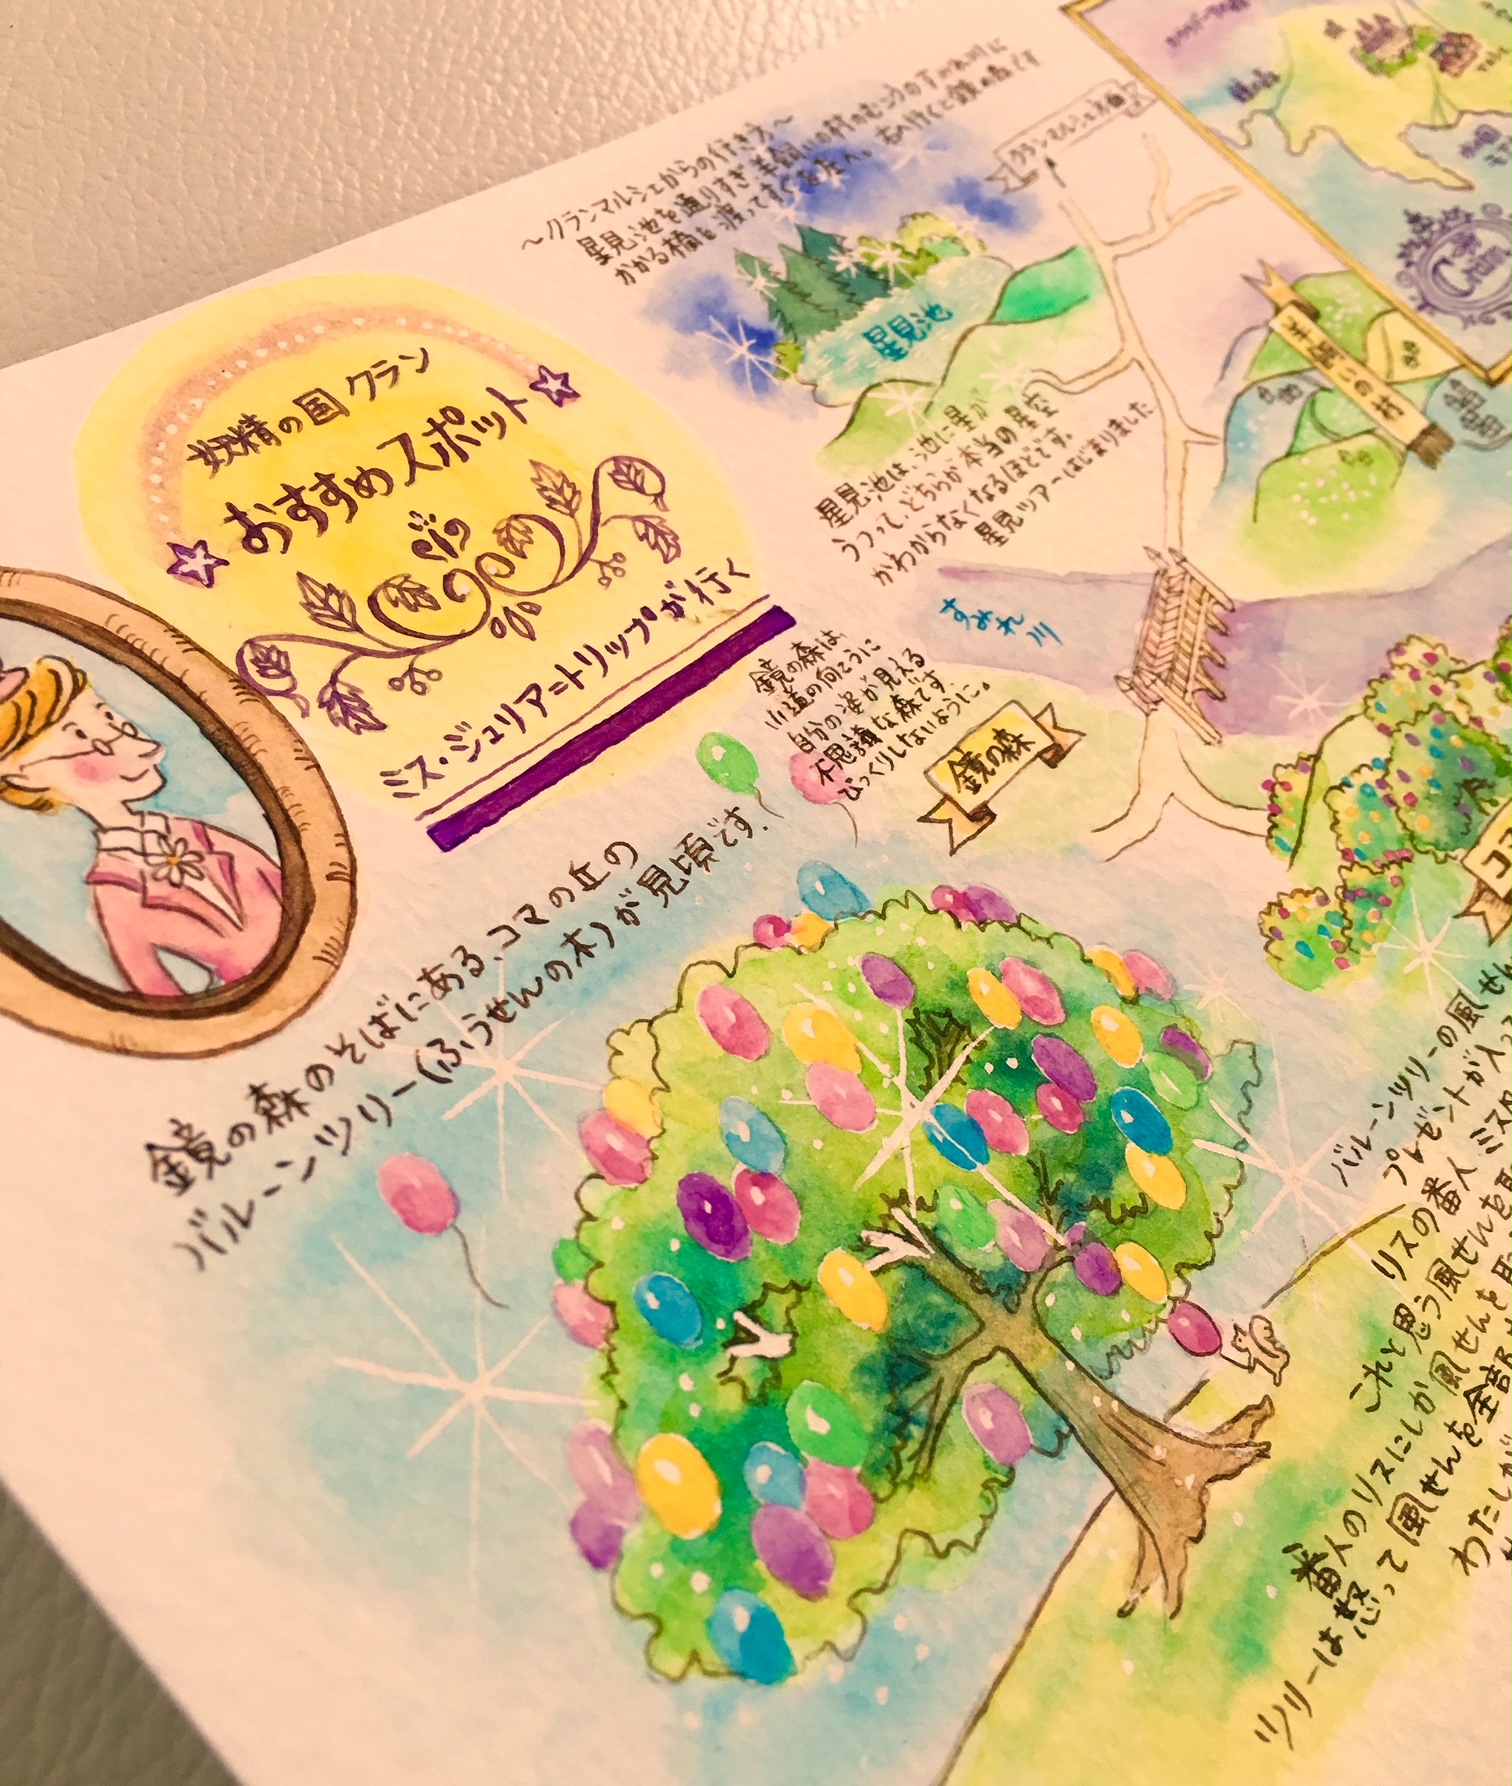 妖精の国 クラン
おすすめスポット
ミス・ジュリア=トリップが行く
〜クランマルシェからの行き方〜
星見池を通りすぎ、羊飼いの村のむこうのすみれ川に
かかる橋を渡ってすぐ
右へ行くと鏡の森です
クランマルシェ方面
星見池
羊飼いの村
星見池は、池に星が
うつって、どちらが本当の星空
かわからなくなるほどです。
星見ツアーはじまりました
すみれ川
鏡の森は、
川辺の向こうに
自分の姿が見える
不思議な森です。
びっくりしないように。
鏡の森
コマ
鏡の森のそばにある、コマの丘の
バルーンツリー(ふうせんの木)が見頃です。
バルーンツリーの風せん
プレゼントが入っ
リスの番人 ミス
これと思う風せんを
番人のリスにしか風せんを
ツリーは怒って風せんを全部
わたしが